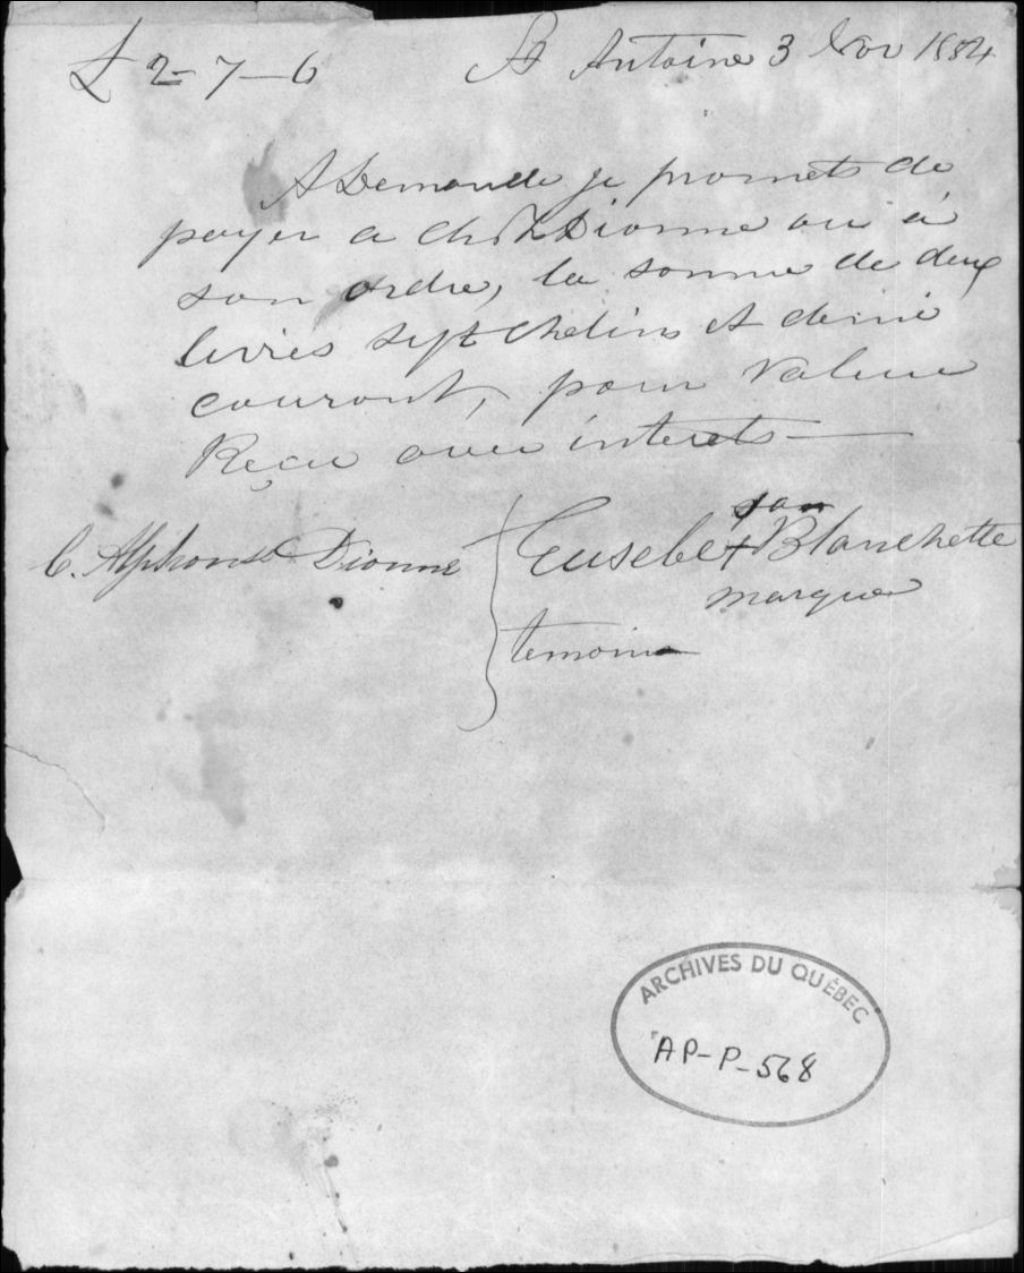 £ 2-7-6 St Antoine 3 Nov 1884
A Demande je promets de
payer a Chs Dionne ou à
son ordre, la somme de deux
livres sept chelins et demi
courant, pour valeur
Reçu avec interets
son
C. Alphonse Dionne Eusebe + Blanchette
marque
temoin
ARCHIVES DU QUÉBEC
AP-P-568